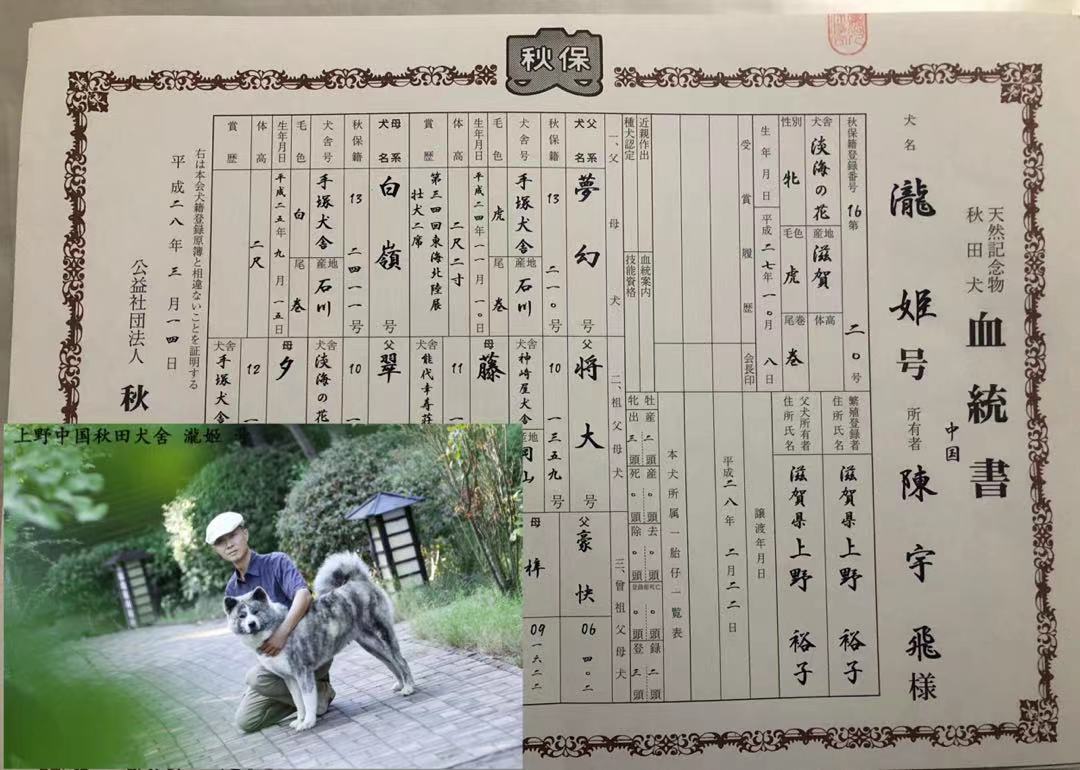 秋保
天然記念物
秋田犬
血統書
犬名
瀧姫号
所有者
中国
陳宇飛様
秋保籍登録番号
16第
二〇号
犬舎
淡海の花
産地
滋賀
体高
性別
牝
毛色
虎
尾巻
巻
生年月日
平成二七年一〇月八日
受賞履歴
会長印
繁殖登録者
住所氏名
滋賀県上野裕子
父犬所有者
住所氏名
滋賀県上野裕子
譲渡年月日
平成二八年二月二二日
本犬所属一胎仔一覧表
牡産二頭
牝出三頭
死産〇頭
去〇頭
除〇頭
登録二頭
登三頭
近親作出
種犬認定
血統案内
技能資格
一、父母犬
二、祖父母犬
三、曾祖父母犬
父系
犬名
夢幻号
秋保籍
13
二一〇号
犬舎号
手塚犬舎
産地
石川
毛色
虎
尾
巻
生年月日
平成二四年一一月一〇日
体高
二尺二寸
賞歴
第三四回東海北陸展
壮犬二席
母系
犬名
白嶺号
秋保籍
13
二四一一号
犬舎号
手塚犬舎
産地
石川
毛色
白
尾
巻
生年月日
平成二五年九月一五日
体高
二尺
賞歴
父
将大号
10
一三五九号
犬舎
神崎屋犬舎
産地
岡山
母
藤
11
犬舎
能代幸寿荘
父
翠
10
犬舎
淡海の花
母
夕
12
犬舎
手塚犬舎
父
豪快
06
四〇二
母
梓
09
一六二二
右は本会犬籍登録原簿と相違ないことを証明する
平成二八年三月一四日
公益社団法人
秋
上野中国秋田犬舎 瀧姫 号